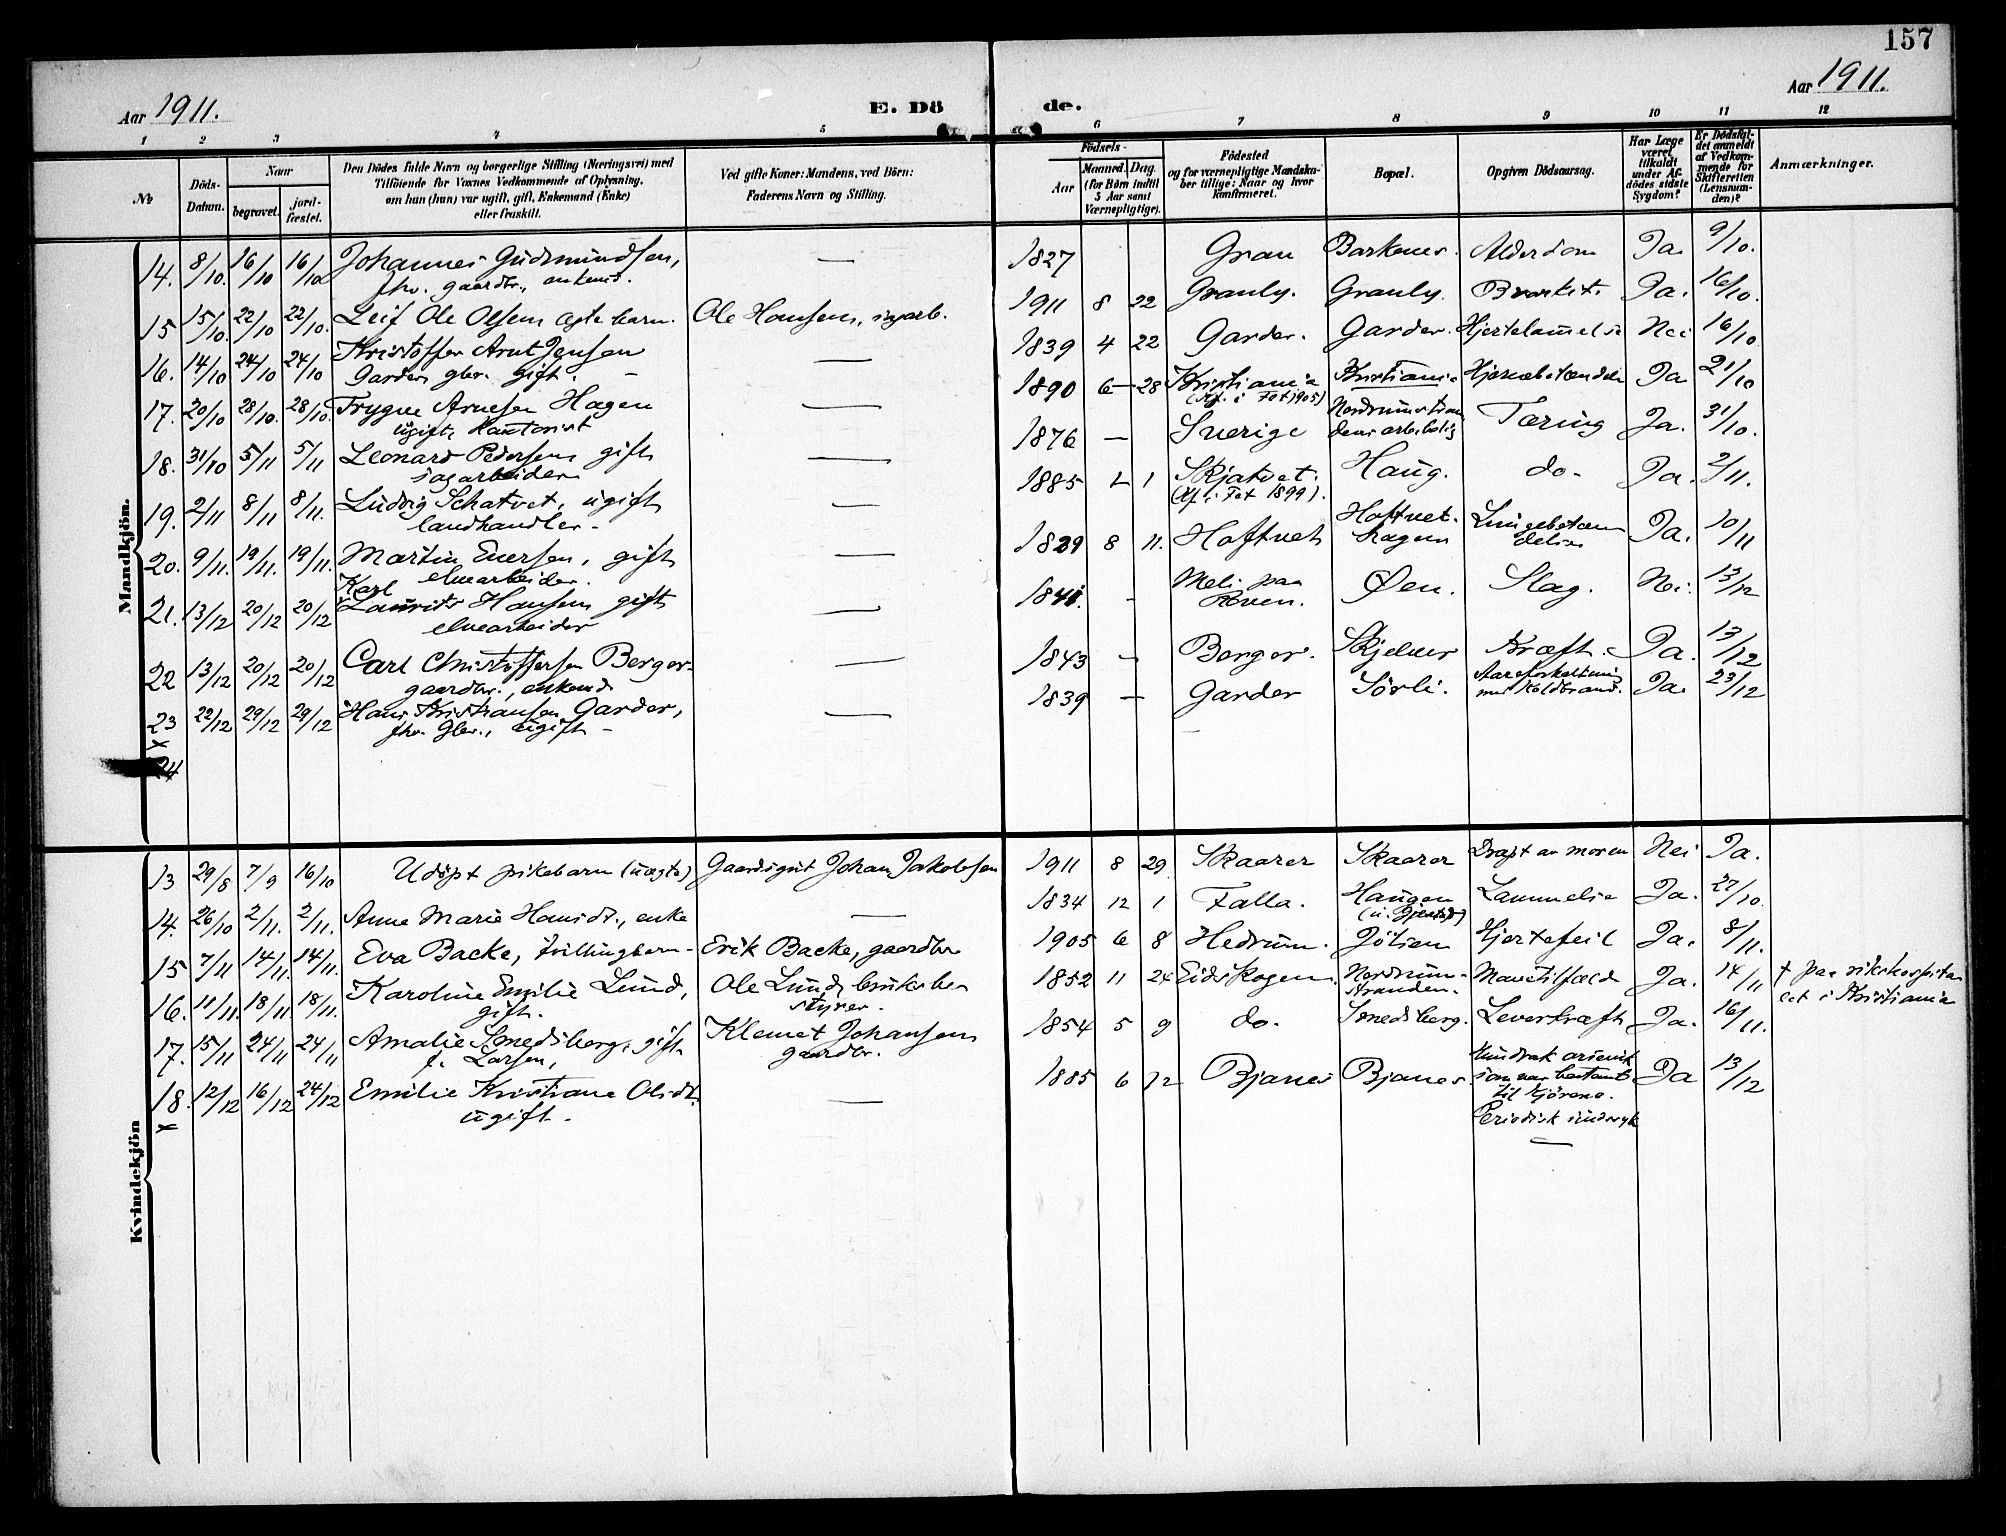 157
Aar 1911.
E. Dö de.
Aar 1911.
1 2 3 4 5 6 7 8 9 10 11 12
No
Döds-Datum.
Naar
begravet.
jord-fæstet.
Den Dödes fulde Navn og borgerlige Stilling (Næringsvei) med
Tilföiende for Voxnes Vedkommende af Oplysning,
om han (hun) var ugift, gift, Enkemand (Enke)
eller fraskilt.
Ved gifte Koner: Mandens, ved Börn:
Faderens Navn og Stilling.
Födsels-
Aar
Maaned. Dag.
(for Börn indtil
5 Aar samt
Værnepligtige).
Födested
og for værnepligtige Mandska-
ber tillige: Naar og hvor
konfirmeret.
Bopæl.
Opgiven Dödsaarsag.
Har Læge
været
tilkaldt
under Af-
dödes sidste
Sygdom?
Er Dödsfal-
det anmeldt
af Vedkom-
mende for
Skifteretten
(Lensman-
den)?
Anmærkninger.
Mandkjön.
14. 8/10. 16/10 16/10 Johannes Gudmundsen, — 1827 Gran Barkenes. Alderdom Ja. 9/10.
fhv. gaardbr., enkemd.
15 15/10. 22/10 22/10. Leif Ole Olsen ægte barn. Ole Hansen, sagarb. 1911 8 22 Granly. Granly. Bronkit. Ja. 16/10.
16. 14/10 24/10 24/10 Kristoffer Arnt Jensen — 1839 4 22 Garder. Garder. Hjertelammelse Nei 16/10
Garder, gbr. gift. –
17. 20/10 28/10. 28/10. Trygve Arnesen Hagen — 1890 6 – 28 Kristiania Kristiania Ja 21/10
(Kf. i Fet 1905)
ugift, kontorist
18. 31/10 5/11 5/11 Leonard Pedersen gift — 1876 — Sverige Tæring Ja. 31/10.
sagarbeider
19. 2/11 8/11 8/11. Ludvig Schatvet, ugift — 1885 1 Skjatvet. Haug. do. Ja. 2/11.
(Kf. i Fet 1899).
landhandler.
20. 9/11. 19/11. 19/11. Martin Evensen, gift — 1829 8 11. Hoftvet Hoftvet-hagen Lungebetændelse Ja. 10/11
elvearbeider.
21. 13/12 20/12 20/12 Karl Laurits Hansen gift — 1841. – Øen. Slag. Nei. 13/12
elvearbeider
22 13/12 20/12 20/12 Carl Christoffersen Berger — 1843 – Berger. Skjelver Kræft. Ja. 13/12
gaardbr., enkemd.
23 22/12 29/12 29/12 Hans Kristiansen Garder, — 1839 – Garder Sörli. Aareforkalkning Ja. 23/12
med koldbrand.
fhv. Gbr., ugift –
x
24
Kvindekjön
13 29/8 7/9 16/10 Udöpt pikebarn (uægte) Gaardsgut Johan Jakobsen 1911 8 29 Skaarer Skaarer Dræpt av moren Nei Ja.
14. 26/10 2/11. 2/11. Anne Marie Hansdt., enke — 1834 12 1 Falla. Haugen Lammelse Ja. 27/10.
15 7/11 14/11. 14/11. Eva Backe, tvillingbarn – Erik Backe, gaardbr 1905 6 8 Hedrum. Jölsen Hjertefeil Ja. 8/11.
16. 11/11. 18/11 18/11. Karoline Emilie Lund, Ole Lund, bruksbe 1852 11 24 Eidskogen. Nordrum- Mavetilfæld Ja. 14/11 † paa rikshospita
gift. styrer. stranden. let i Kristiania
17. 15/11 24/11 24/11 Amalie Smedsberg, gift Klemet Johansen 1854 5 9 do. Smedsberg. Leverkræft Ja. 16/11.
f. Larsen, gaardbr.
18. 12/12 16/12 24/12 Emilie Kristiane Olsdt. — 1885 6 12 Bjanes Bjanes Inndrak arsenik Ja 13/12
ugift. som var bestemt
til kjörene.
Periodisk sindssyk
x —